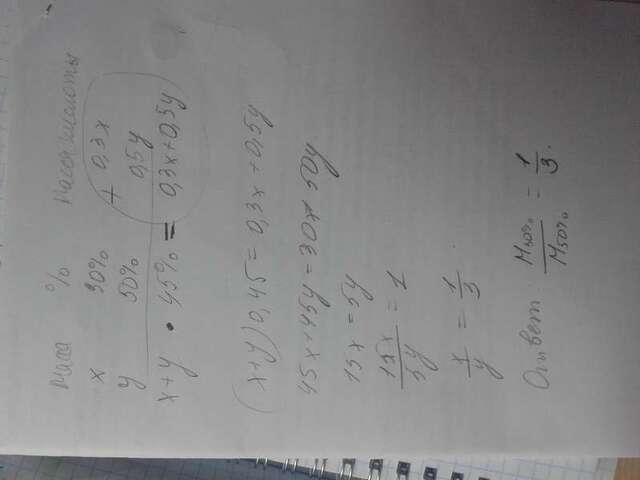 Масса % Масса кислоты
x 30% + 0,3x
y 50% 0,5y
x+y • 45% = 0,3x+0,5y
(x+y)0,45 = 0,3x+0,5y
45x+45y=30x+50y
15x = 5y
15x/5y = 1
x/y = 1/3
Ответ M30%/M50% = 1/3.